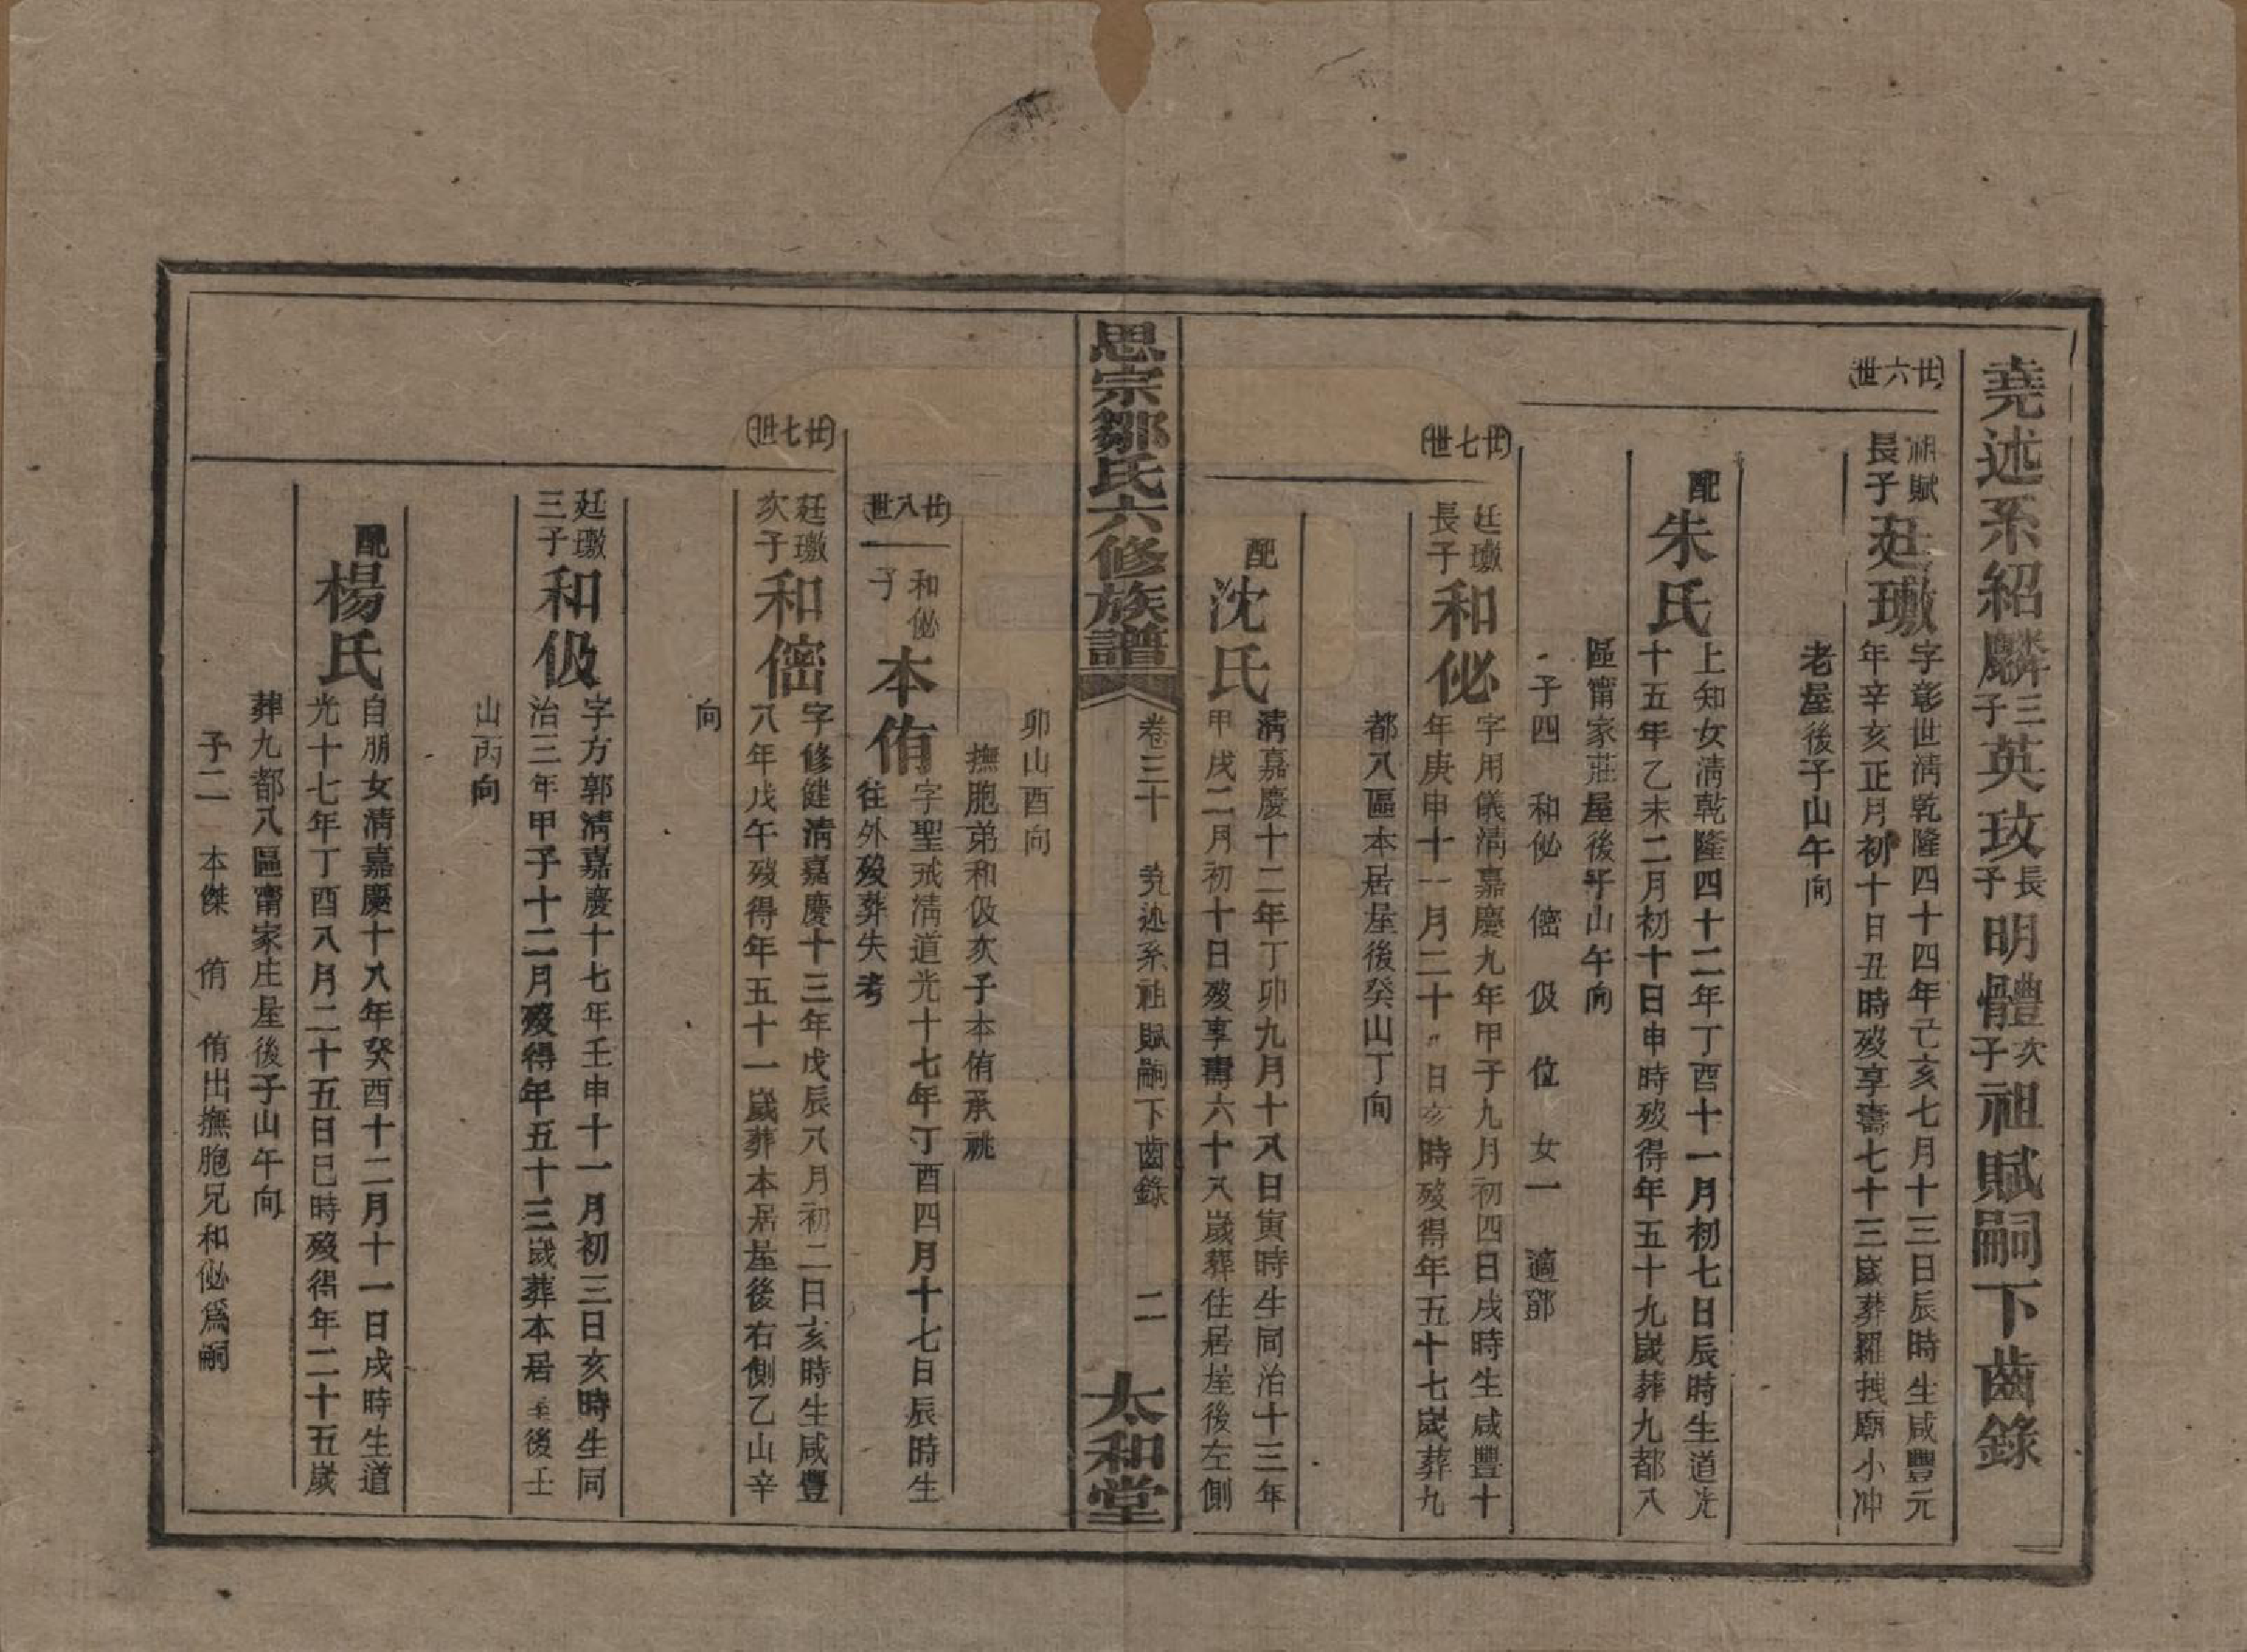 堯述系紹麟三子英玫長子明體次子祖賦嗣下齒錄
廿六世
祖賦長子廷璥
字彰世淸乾隆四十四年己亥七月十三日辰時生咸豐元
年辛亥正月初十日丑時歿享壽七十三歲葬羅拽廟小冲
老屋後子山午向
配朱氏
上知女淸乾隆四十二年丁酉十一月初七日辰時生道光
十五年乙未二月初十日申時歿得年五十九歲葬九都八
區甯家莊屋後子山午向
子四 和佖 㑄 伋 位 女一 適鄧
廿七世
廷璥長子和佖
字用儀淸嘉慶九年甲子九月初四日戌時生咸豐十
年庚申十一月二十 日亥時歿得年五十七歲葬九
都八區本居屋後癸山丁向
配沈氏
淸嘉慶十二年丁卯九月十八日寅時生同治十三年
甲戌二月初十日歿享壽六十八歲葬住居屋後左側
思宗鄒氏六修族譜
卷三十 堯述系祖賦嗣下齒錄 二
太和堂
卯山酉向
撫胞弟和伋次子本侑承祧
廿八世
和佖子本侑
字聖 淸道光十七年丁酉四月十七日辰時生
往外歿葬失考
廿七世
廷璥次子和㑄
字修健淸嘉慶十三年戊辰八月初二日亥時生咸豐
八年戊午歿得年五十一歲葬本居屋後右側乙山辛
向
廷璥三子和伋
字方郭淸嘉慶十七年壬申十一月初三日亥時生同
治三年甲子十二月歿得年五十三歲葬本居屋後壬
山丙向
配楊氏
自朋女淸嘉慶十八年癸酉十二月十一日戌時生道
光十七年丁酉八月二十五日巳時歿得年二十五歲
葬九都八區甯家庄屋後子山午向
子二 本傑 侑 侑出撫胞兄和佖爲嗣